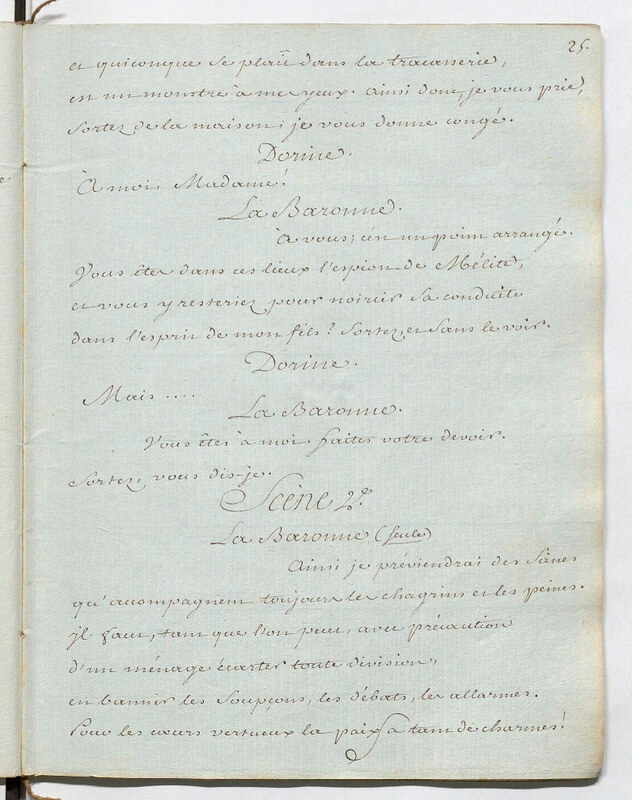 25.
et quiconque se plaît dans la tracasserie,
est un monstre à mes yeux. ainsi donc, je vous prie,
Sortez de la maison; je vous donne congé.
Dorine.
À moi, Madame!
La Baronne.
À vous; c'est un point arrangé.
Vous êtes dans ces lieux l'espion de Mélite,
et vous y resteriez pour noircir sa conduite
dans l'esprit de mon fils? Sortez, et sans le voir.
Dorine.
Mais ....
La Baronne.
Vous êtes à moi. faites votre devoir.
Sortez, vous dis-je.
Scène 2.e
La Baronne (seule)
Ainsi je préviendrai des Scènes
qu'accompagnent toujours les chagrins et les peines.
il faut, tant que l'on peut, avec précaution
d'un ménage écarter toute division,
en bannir les Soupçons, les débats, les allarmes.
Pour les cœurs vertueux la paix a tant de charmes!